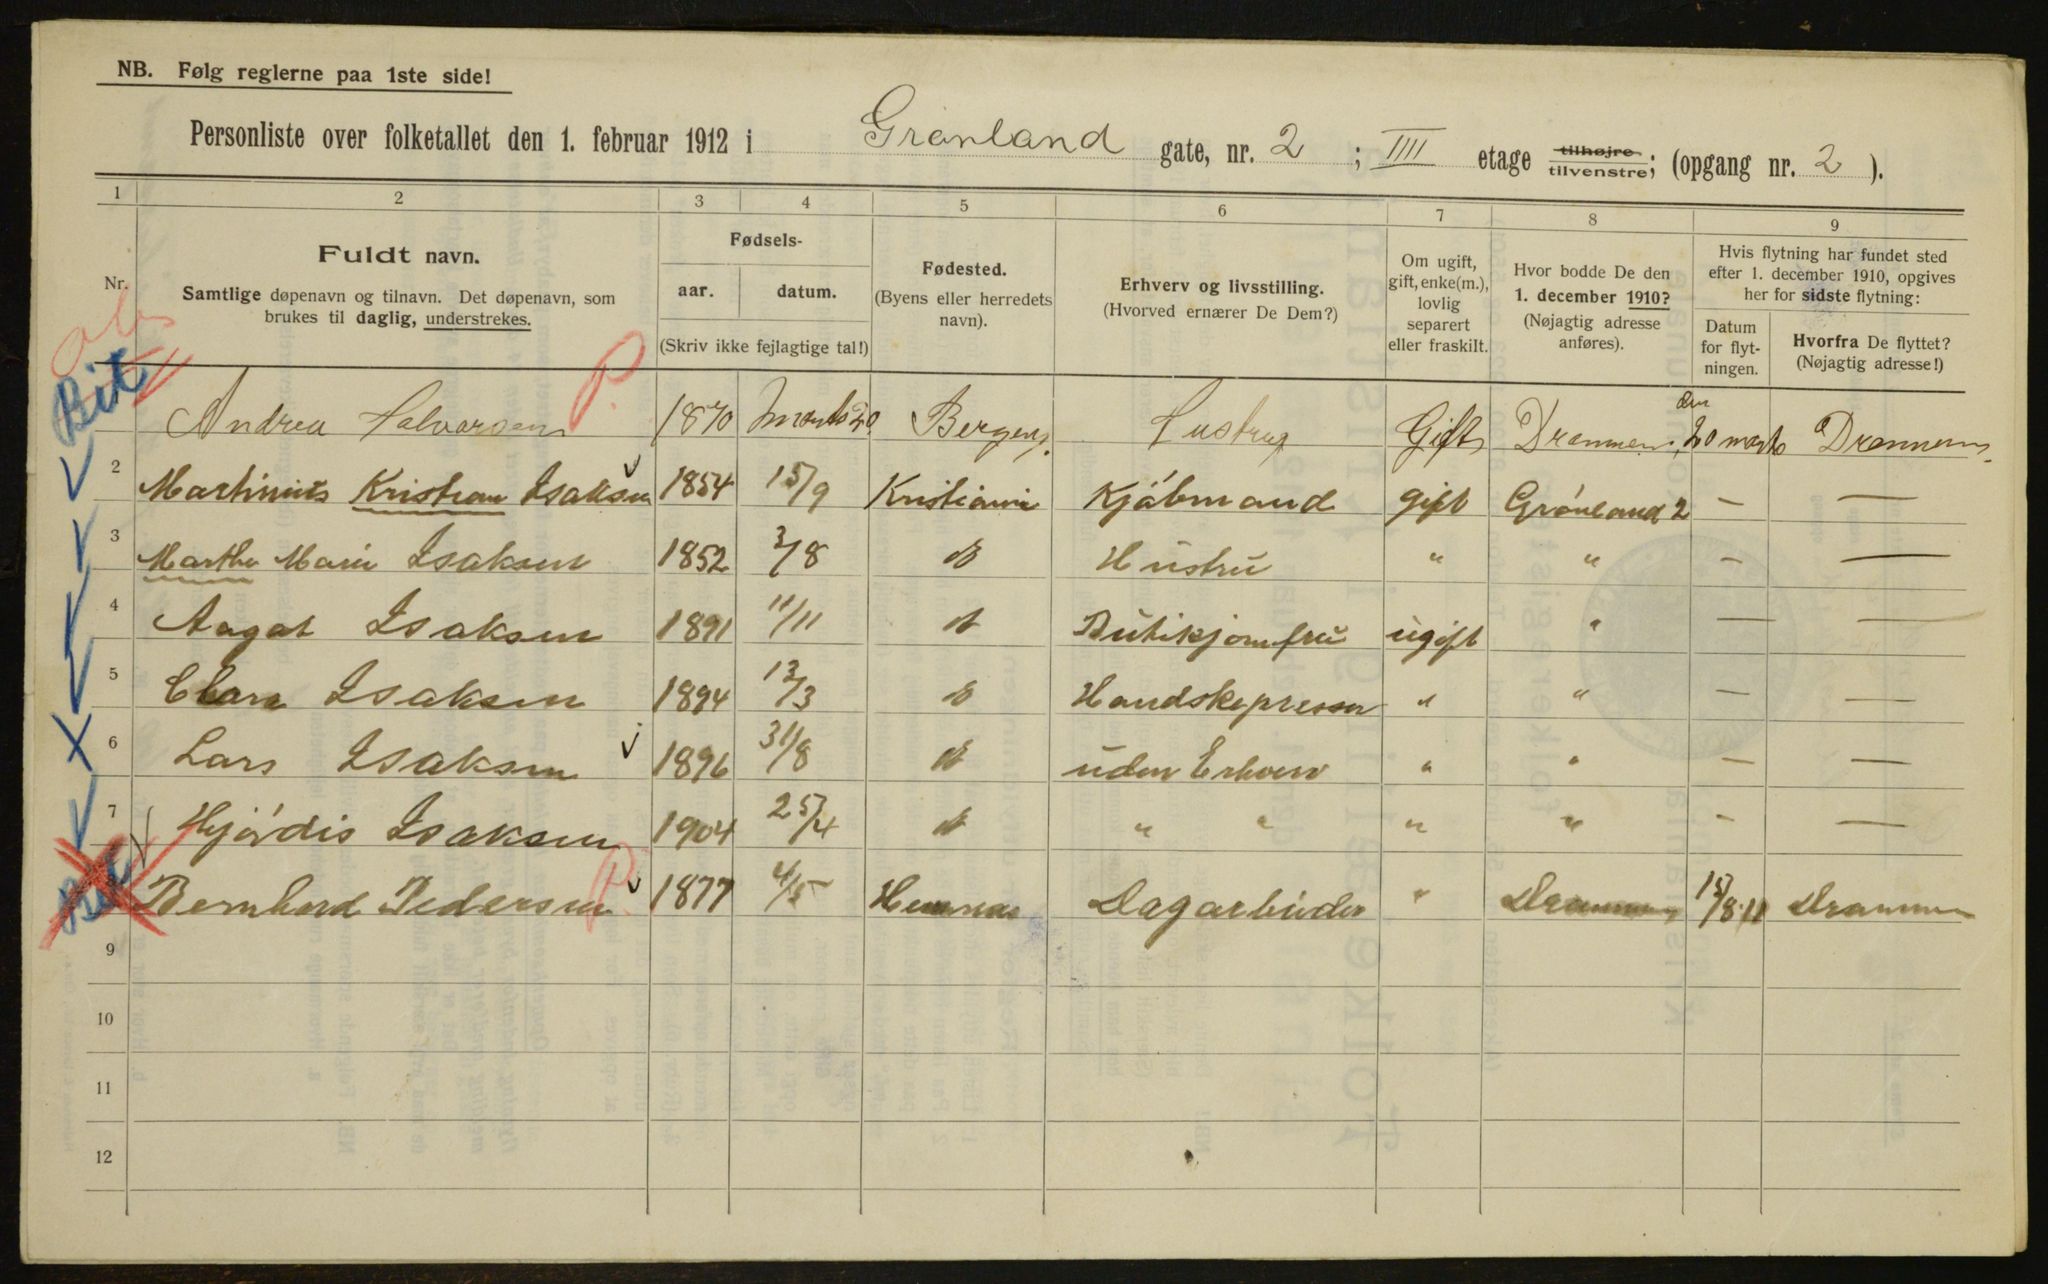 NB. Følg reglerne paa 1ste side!
Personliste over folketallet den 1. februar 1912 i Grønland gate, nr. 2 ; IIII etage tilhøjre tilvenstre; (opgang nr. 2 ).
1 2 3 4 5 6 7 8 9
Nr.
Fuldt navn.
Samtlige døpenavn og tilnavn. Det døpenavn, som
brukes til daglig, understrekes.
Fødsels-
aar. datum.
(Skriv ikke fejlagtige tal!)
Fødested.
(Byens eller herredets
navn).
Erhverv og livsstilling.
(Hvorved ernærer De Dem?)
Om ugift,
gift, enke(m.),
lovlig
separert
eller fraskilt.
Hvor bodde De den
1. december 1910?
(Nøjagtig adresse
anføres).
Hvis flytning har fundet sted
efter 1. december 1910, opgives
her for sidste flytning:
Datum
for flyt-
ningen.
Hvorfra De flyttet?
(Nøjagtig adresse!)
Andrea Halvorsen P. 1870 Marts 20 Bergen. Hustru Gift Drammen den 20 marts Drammen.
2 Martinius Kristian Isaksen 1854 15/9 Kristiania Kjøbmand gift Grønland 2 — —
3 Marthe Marie Isaksen 1852 3/8 Hustru " " — —
4 Aagot Isaksen 1891 11/11 Butikjomfru ugift " — —
5 Clara Isaksen 1894 13/3 Handskepresser " " — —
6 Lars Isaksen 1896 31/8 uden Erhverv " " — —
7 Hjørdis Isaksen 1904 25/4 " " " " — —
Bernhard Pedersen P. 1877 4/5 Dagarbeider " Drammen 15/8.11 Drammen
9
10
11
12